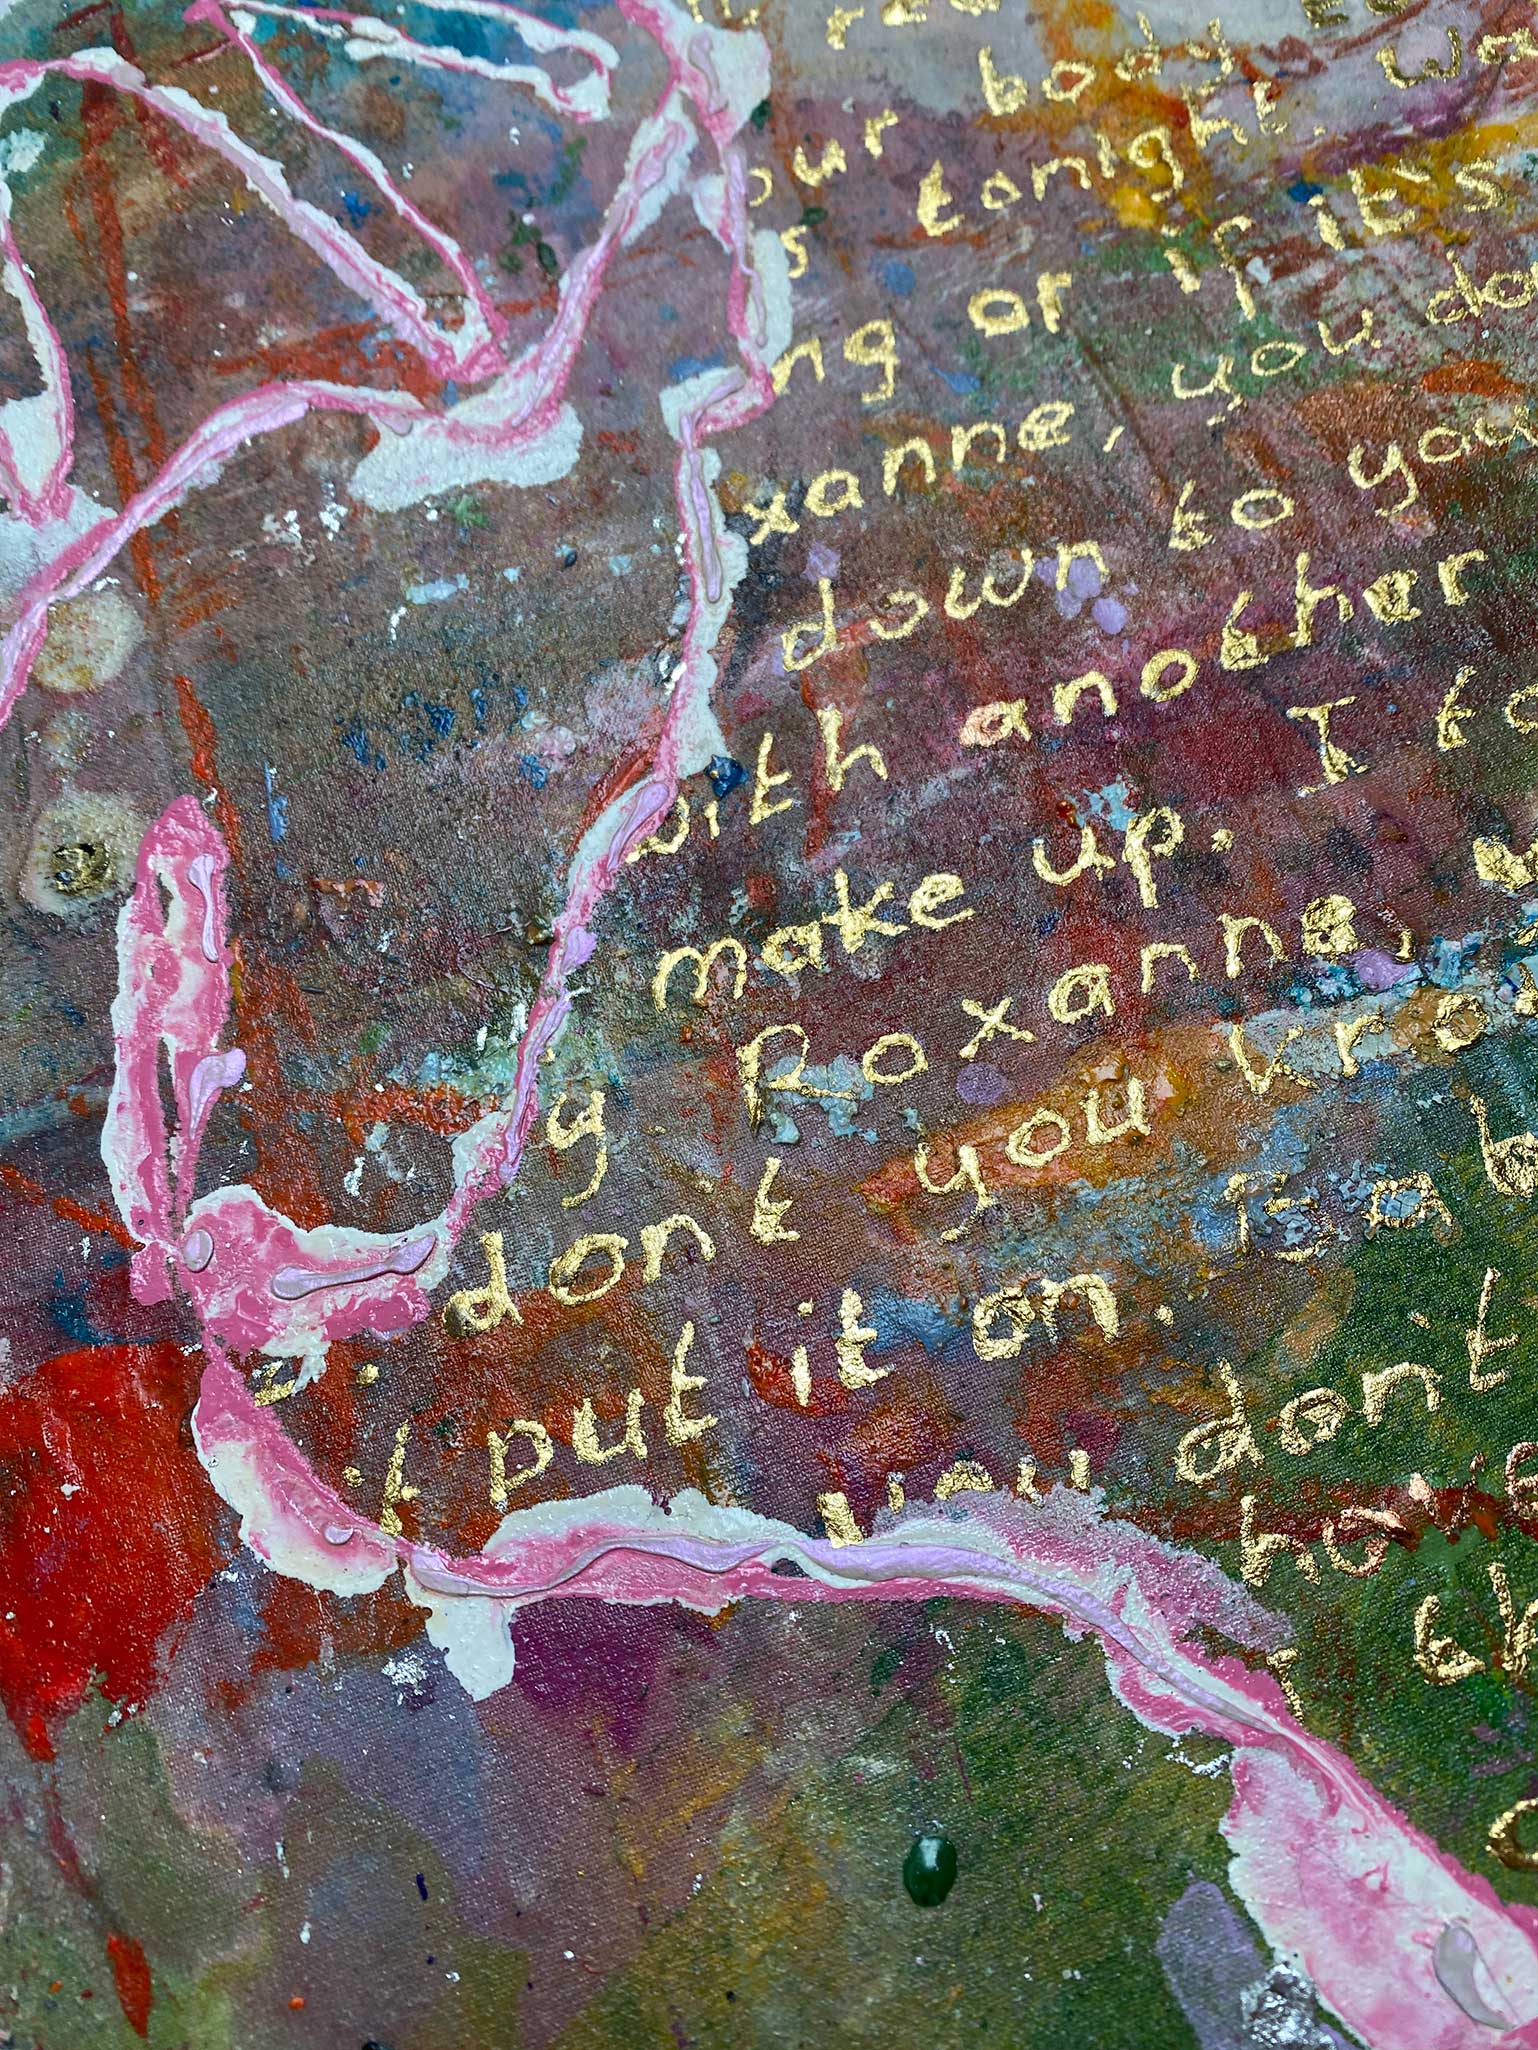 our body
s tonight. wa
ng or if it's
xanne, you do
down to you
with another
make up. I to
y Roxanne,
dont you kno
put it on. Is a b
you don't
have
I th